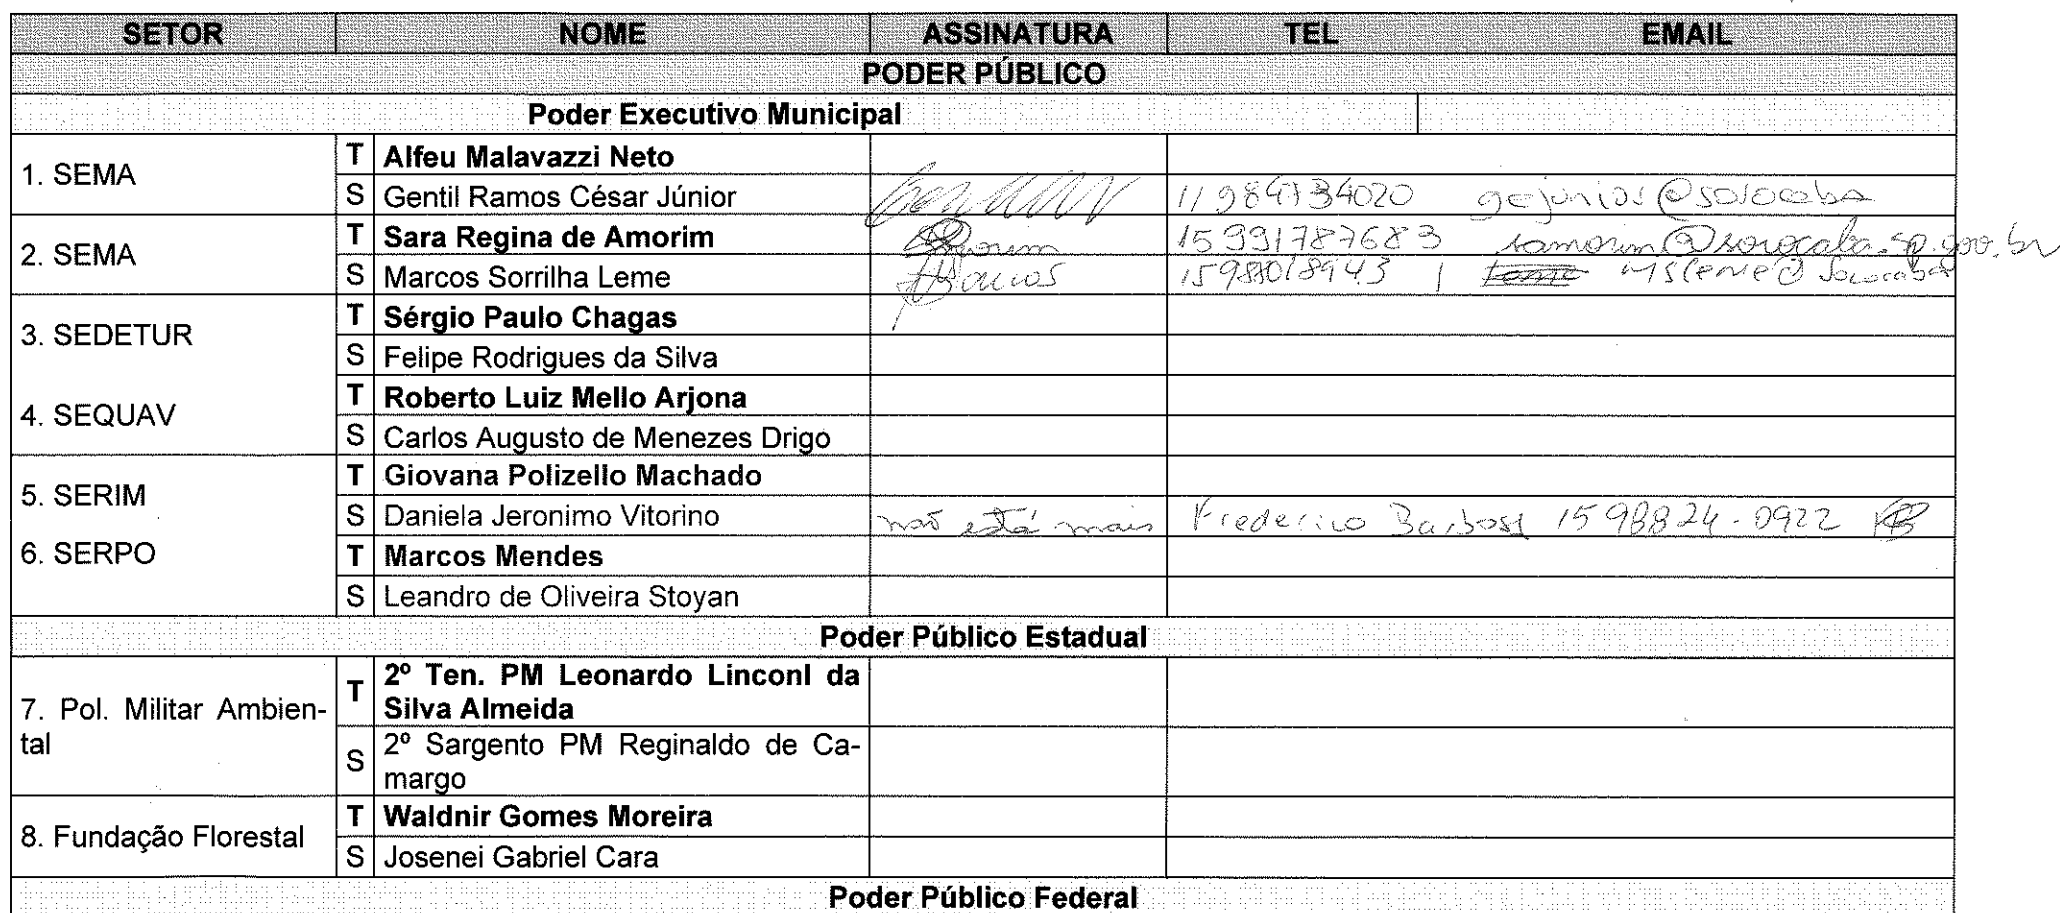 SETOR NOME ASSINATURA TEL EMAIL
PODER PÚBLICO
Poder Executivo Municipal
1. SEMA
T Alfeu Malavazzi Neto
S Gentil Ramos César Júnior 11 984734020 gejunior@sorocaba
2. SEMA
T Sara Regina de Amorim Amorim 15 991787683 samorim@sorocaba.sp.gov.br
S Marcos Sorrilha Leme Marcos 15988018943 MSLeme@Sorocaba
3. SEDETUR
T Sérgio Paulo Chagas
S Felipe Rodrigues da Silva
4. SEQUAV
T Roberto Luiz Mello Arjona
S Carlos Augusto de Menezes Drigo
5. SERIM
T Giovana Polizello Machado
S Daniela Jeronimo Vitorino não está mais Frederico Barbosa 15 98824-0922
6. SERPO
T Marcos Mendes
S Leandro de Oliveira Stoyan
Poder Público Estadual
7. Pol. Militar Ambien-
tal
T 2º Ten. PM Leonardo Linconl da
Silva Almeida
S 2º Sargento PM Reginaldo de Ca-
margo
8. Fundação Florestal
T Waldnir Gomes Moreira
S Josenei Gabriel Cara
Poder Público Federal